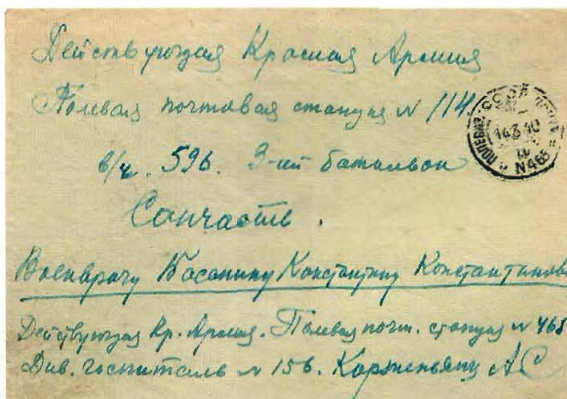 Действующая Красная Армия
Полевая почтовая станция N 114
в/ч. 596. 3-ий батальон
Санчасть.
Военврачу Басанину Константину Константинов
Действующая Кр. Армия. Полевая почт. станция N 465
Див. госпиталь N 156. А С
СССР
14 3 40
N 465